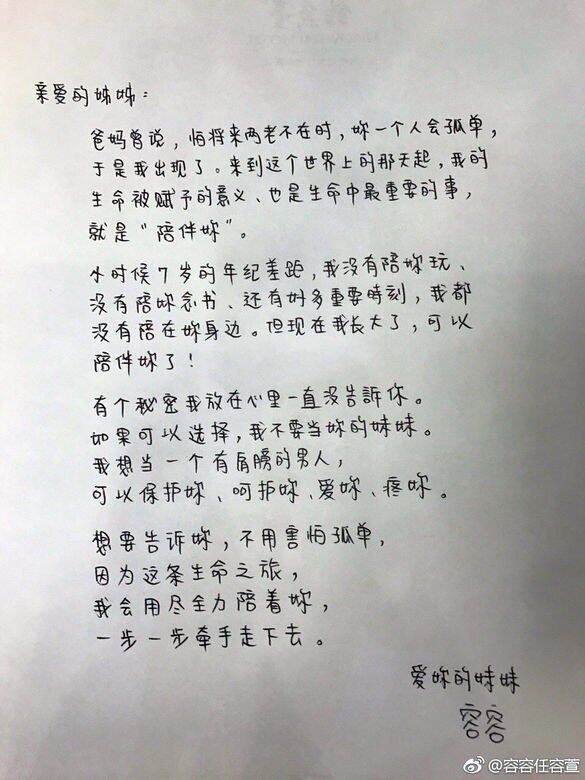 亲爱的姊姊：
爸妈曾说，怕将来两老不在时，妳一个人会孤单，
于是我出现了。来到这个世界上的那天起，我的
生命被赋予的意义、也是生命中最重要的事，
就是“陪伴妳”。
小时候7岁的年纪差距，我没有陪妳玩、
没有陪妳念书、还有好多重要時刻，我都
没有陪在妳身边。但现在我长大了，可以
陪伴妳了！
有个秘密我放在心里一直没告訴你。
如果可以选择，我不要当妳的妹妹。
我想当一个有肩膀的男人，
可以保护妳、呵护妳、爱妳、疼妳。
想要告诉妳，不用害怕孤单，
因为这条生命之旅，
我会用尽全力陪着妳，
一步一步牵手走下去。
爱妳的妹妹
容容
@容容任容萱